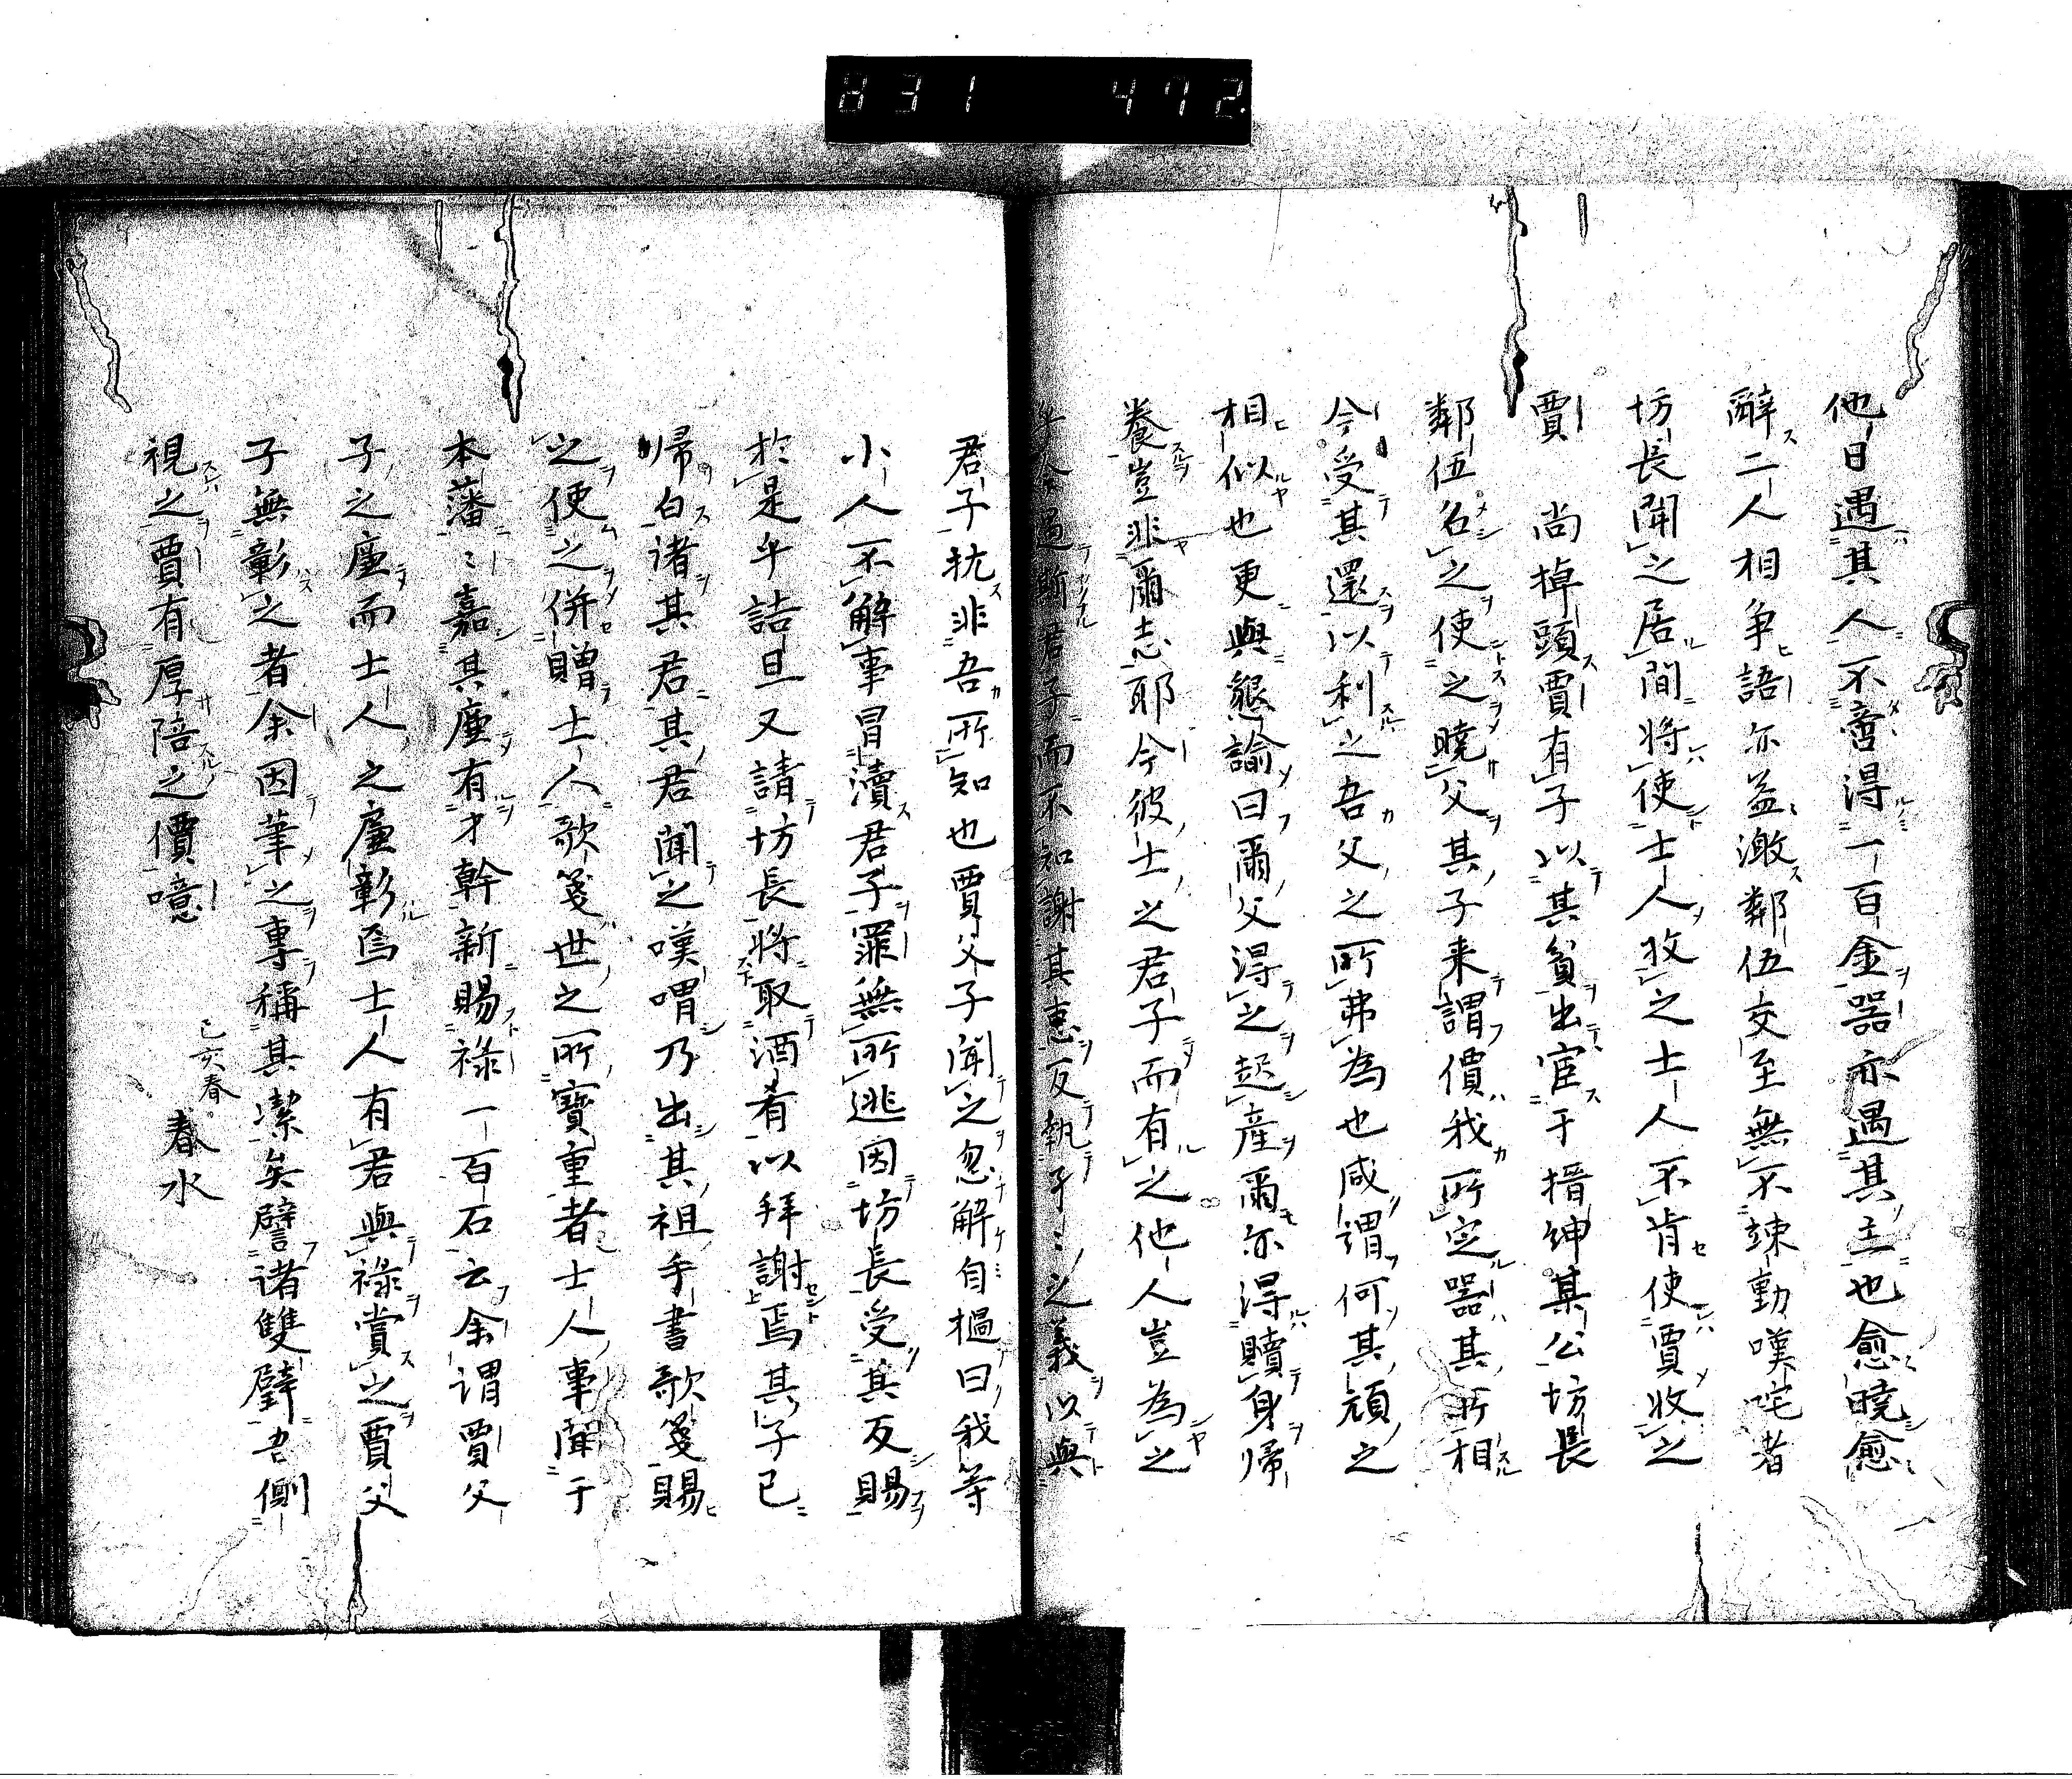 831 472
他日遇其人不啻得一百金器亦遇其主也愈曉愈
辭二人相争語亦益激鄰伍交至無不竦動嘆咤者
坊長聞之居間將使士人收之士人不肯使賈收之
賈尚掉頭賈有子以其貧出宦于搢紳某公坊長
鄰伍名之使之曉父其子来謂價我所定器其所相
今受其還以利之吾父之所弗為也咸謂何其頑之
相似也更與懇諭曰爾父得之起産爾亦得贖身帰
養豈非爾志耶今彼士之君子而有之他人豈為之
乎今遇斯君子而不知謝其恵反執予之義以與
君子抗非吾所知也賈父子聞之忽解自搵曰我等
小人不解事冒瀆君子罪無所逃因坊長受其反賜
於是乎詰旦又請坊長将取酒肴以拜謝焉其子已
帰白诸其君其君聞之嘆喟乃出其祖手書歌箋賜
之使之併贈士人歌箋世之所寶重者士人事聞于
本藩〻嘉其廉有才幹新賜禄一百石云余謂賈父
子之廉而士人之廉彰焉士人有君與禄賞之賈父
子無彰之者余因筆之専稱其潔矣譬诸雙璧吾側
視之賈有厚陪之價噫
己亥春
春水